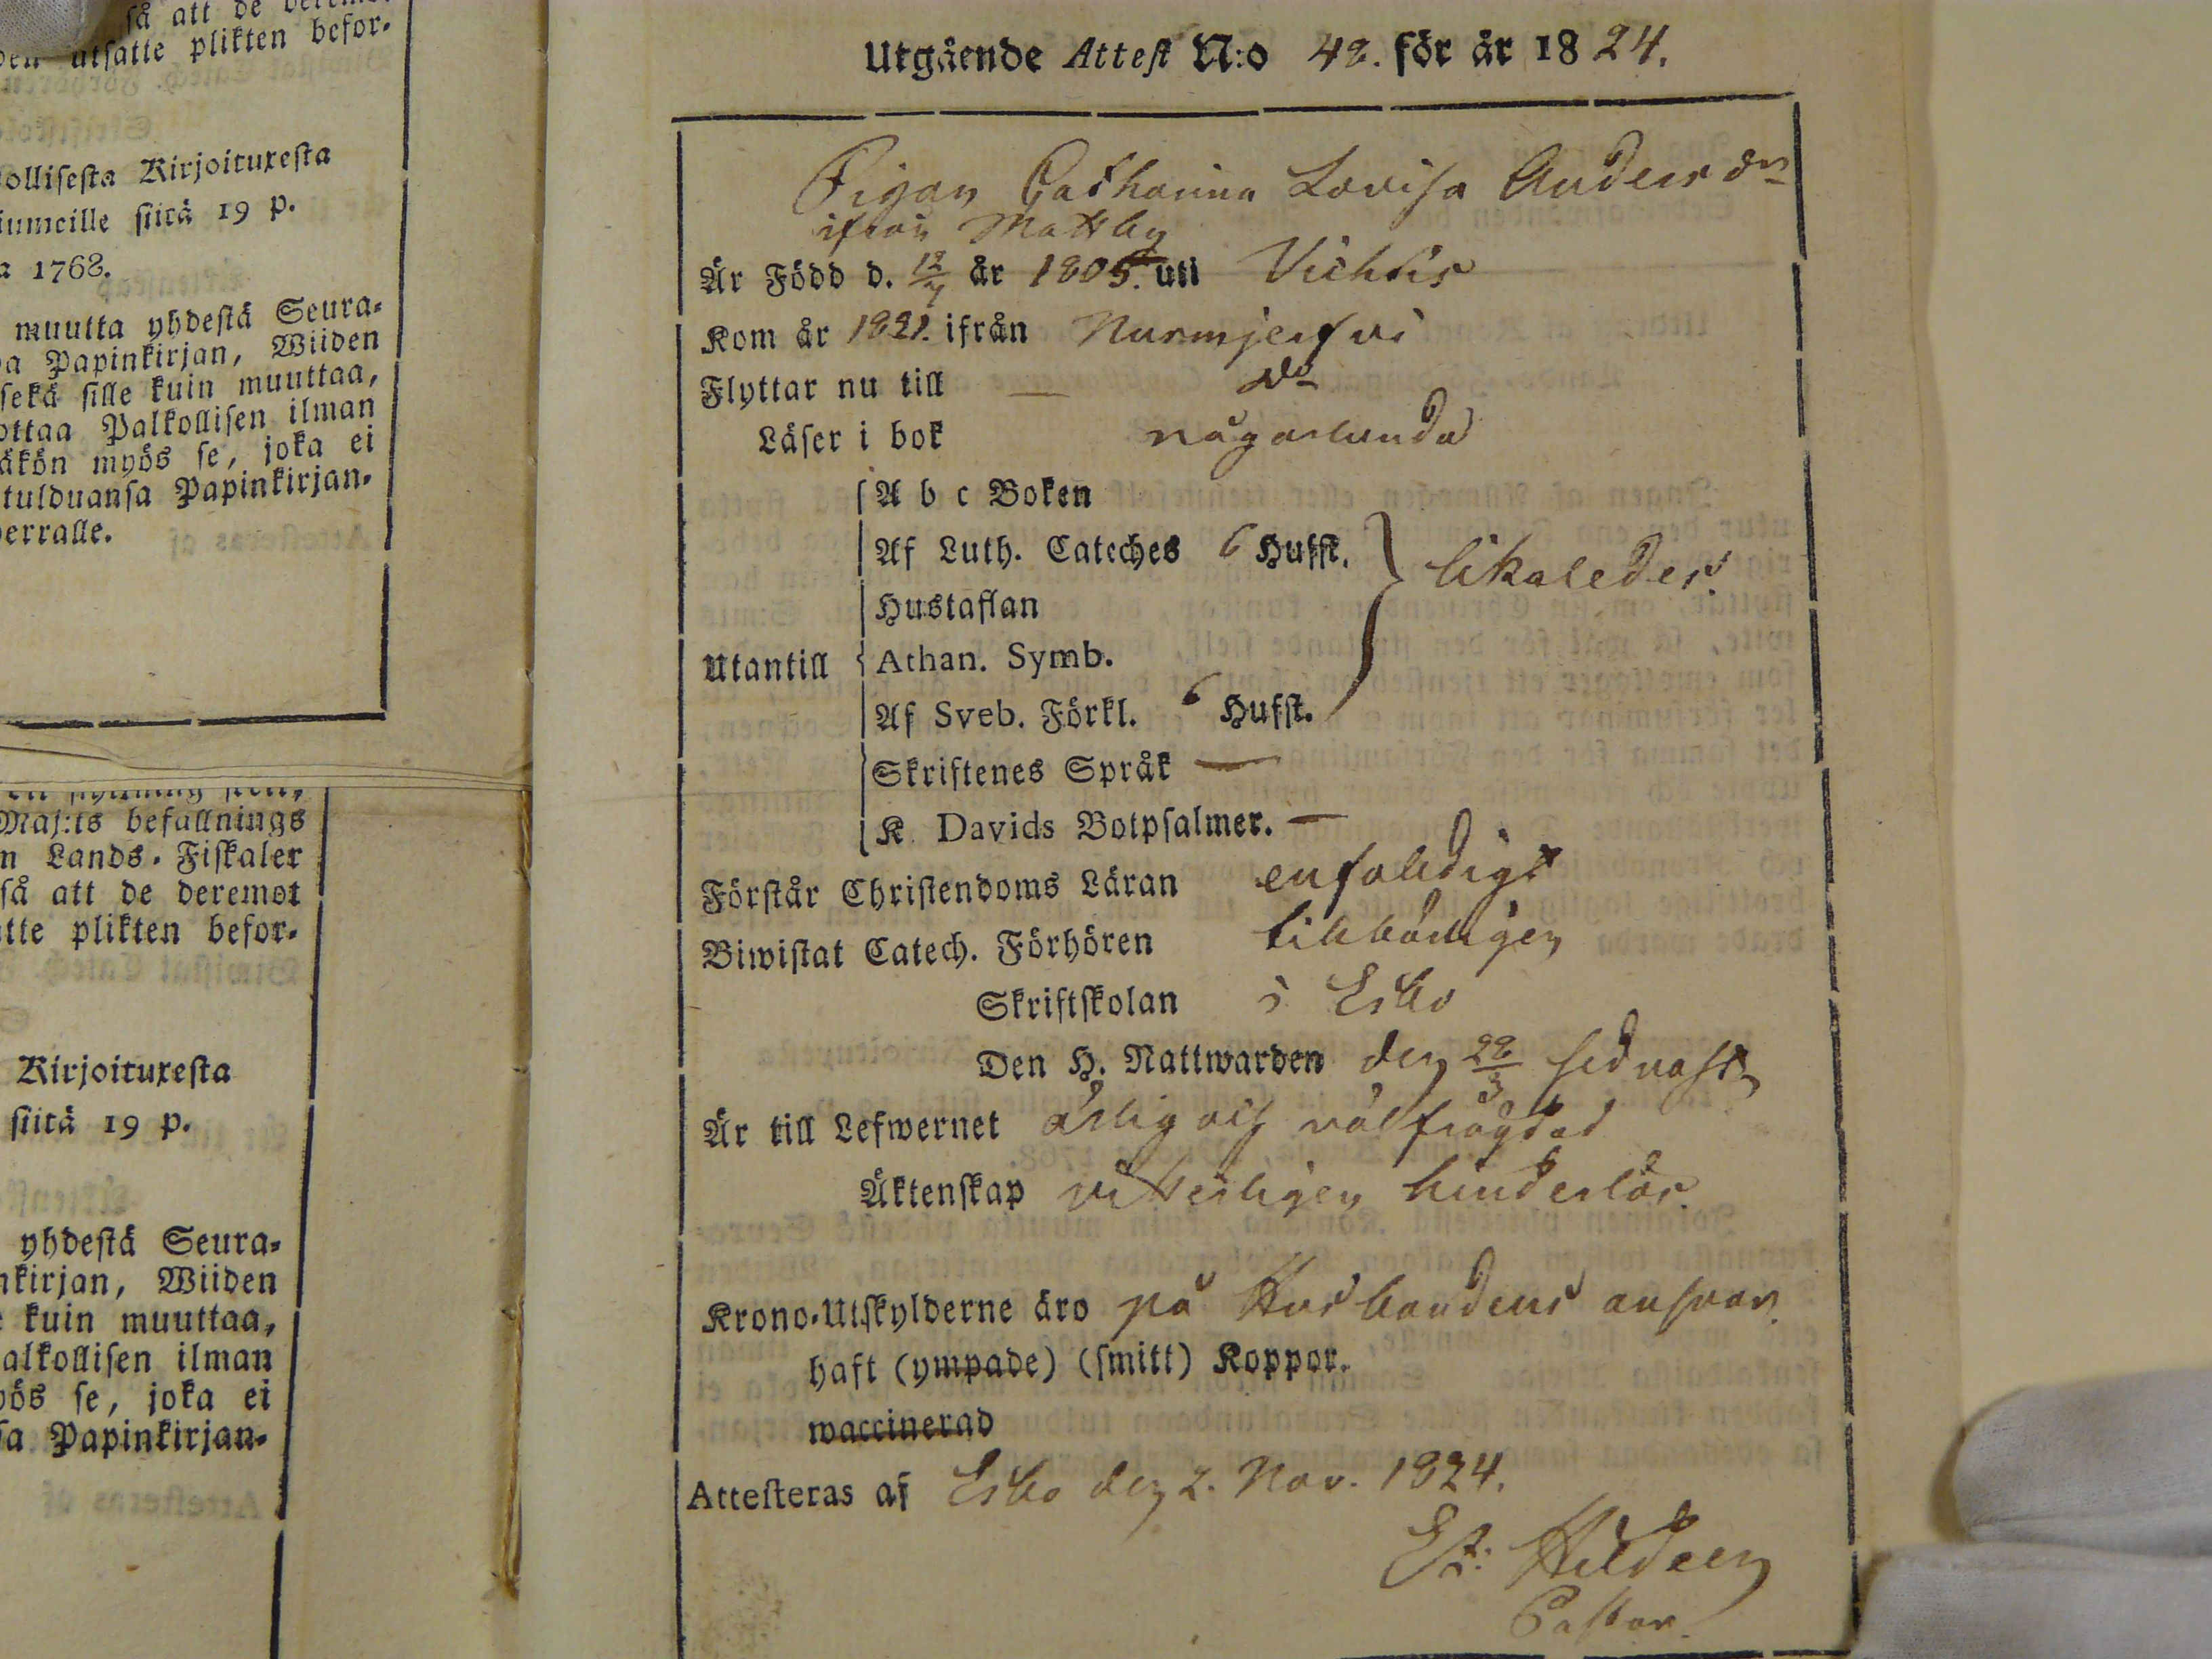 så att de
utsatte plikten befor-
ollisesta Kirjoituxesta
iumeille siitä 19 p.
a 1768.
muutta yhdestä Seura-
a Papinkirjan, Wiiden
sekä sille kuin muuttaa,
ottaa Palkollisen ilman
äkön myös se, joka ei
tulduansa Papinkirjan-
erralle.
Maj:ts befallnings
n Lands-Fiskaler
så att de deremot
tte plikten befor-
Kirjoituxesta
siitä 19 p.
yhdestä Seura-
nkirjan, Wiiden
kuin muuttaa,
alkollisen ilman
ös se, joka ei
sa Papinkirjan-
Utgående Attest N:o 48. för år 1824.
Pigan Catharina Lovisa Andersdr
ifrån Mattby
Är Född d. 12/7 år 1805. uti Vichtis
Kom år 1821. ifrån Nurmjerfvi
Flyttar nu till — do
Läser i bok någorlunda
A b c Boken
Af Luth. Cateches 6 Hufst.
likaledes
Hustaflan
Utantill Athan. Symb.
Af Sveb. Förkl. 6 Hufst.
Skriftenes Språk —
K. Davids Botpsalmer. —
Förstår Christendoms Läran enfaldigt
Biwistat Catech. Förhören tillbörligen
Skriftskolan i Esbo
Den H. Nattwarden den 28/3 sednast
Är till Lefwernet ärlig och välfrägdad
Äktenskap vitterligen hinderlös.
Krono-Utskylderne äro på Husbondens ansvar.
haft (ympade) (smitt) Koppor.
waccinerad
Attesteras af Esbo den 2. Nov. 1824.
Hildeen
Pastor.